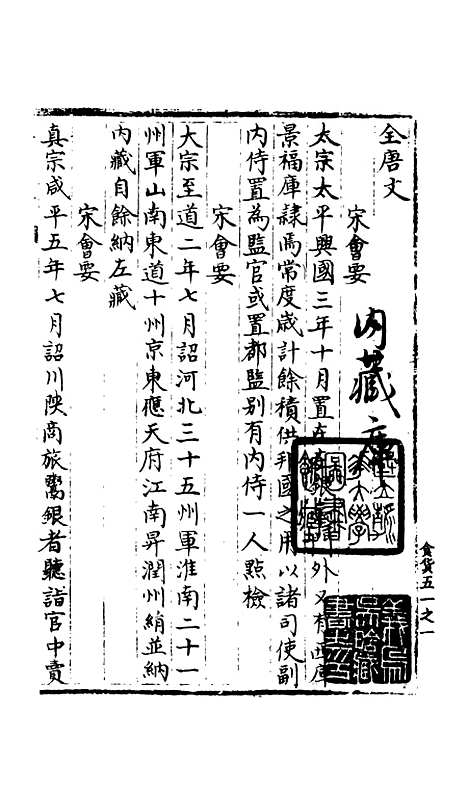 全唐文
宋會要
内藏庫
太宗太平興國三年十月置在 外又有四庫
景福庫隸焉常度歲計餘積供邦國之用以諸司使副
内侍置為監官或置都監别有内侍一人點檢
宋會要
大宗至道二年七月詔河北三十五州軍淮南二十一
州軍山南東道十州京東應天府江南昇潤州絹並納
内藏自餘納左藏
宋會要
真宗咸平五年七月詔川陜商旅鬻銀者聽詣官中賣
食貨五一之一